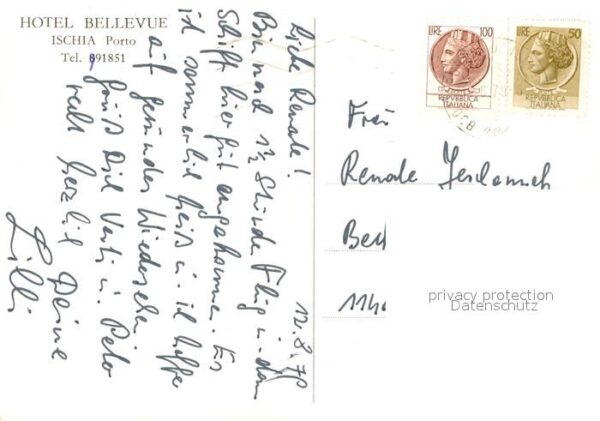 HOTEL BELLEVUE
ISCHIA Porto
Tel. 891851
12.8.78
Liebe Renate!
Bin nach 1½ Stunden Flug u. dem
Schiff hier gut angekommen. Es
ist sommerlich heiß u. ich hoffe
auf gesundes Wiedersehen
Grüß Dich u. Peter
recht herzlich Deine
Lilli
LIRE 100
REPVBBLICA
ITALIANA
LIRE 50
REPVBBLICA
ITALIANA
Frau
Renate
Berl
114
privacy protection
Datenschutz